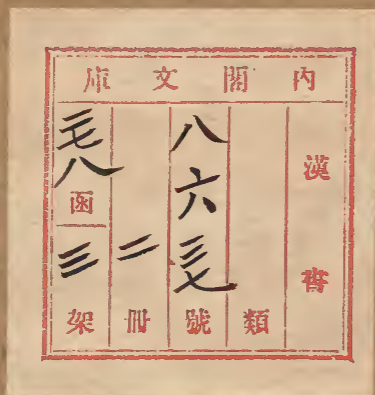 內閣文庫
漢書
類
八六三七號
二冊
三七八函
三架